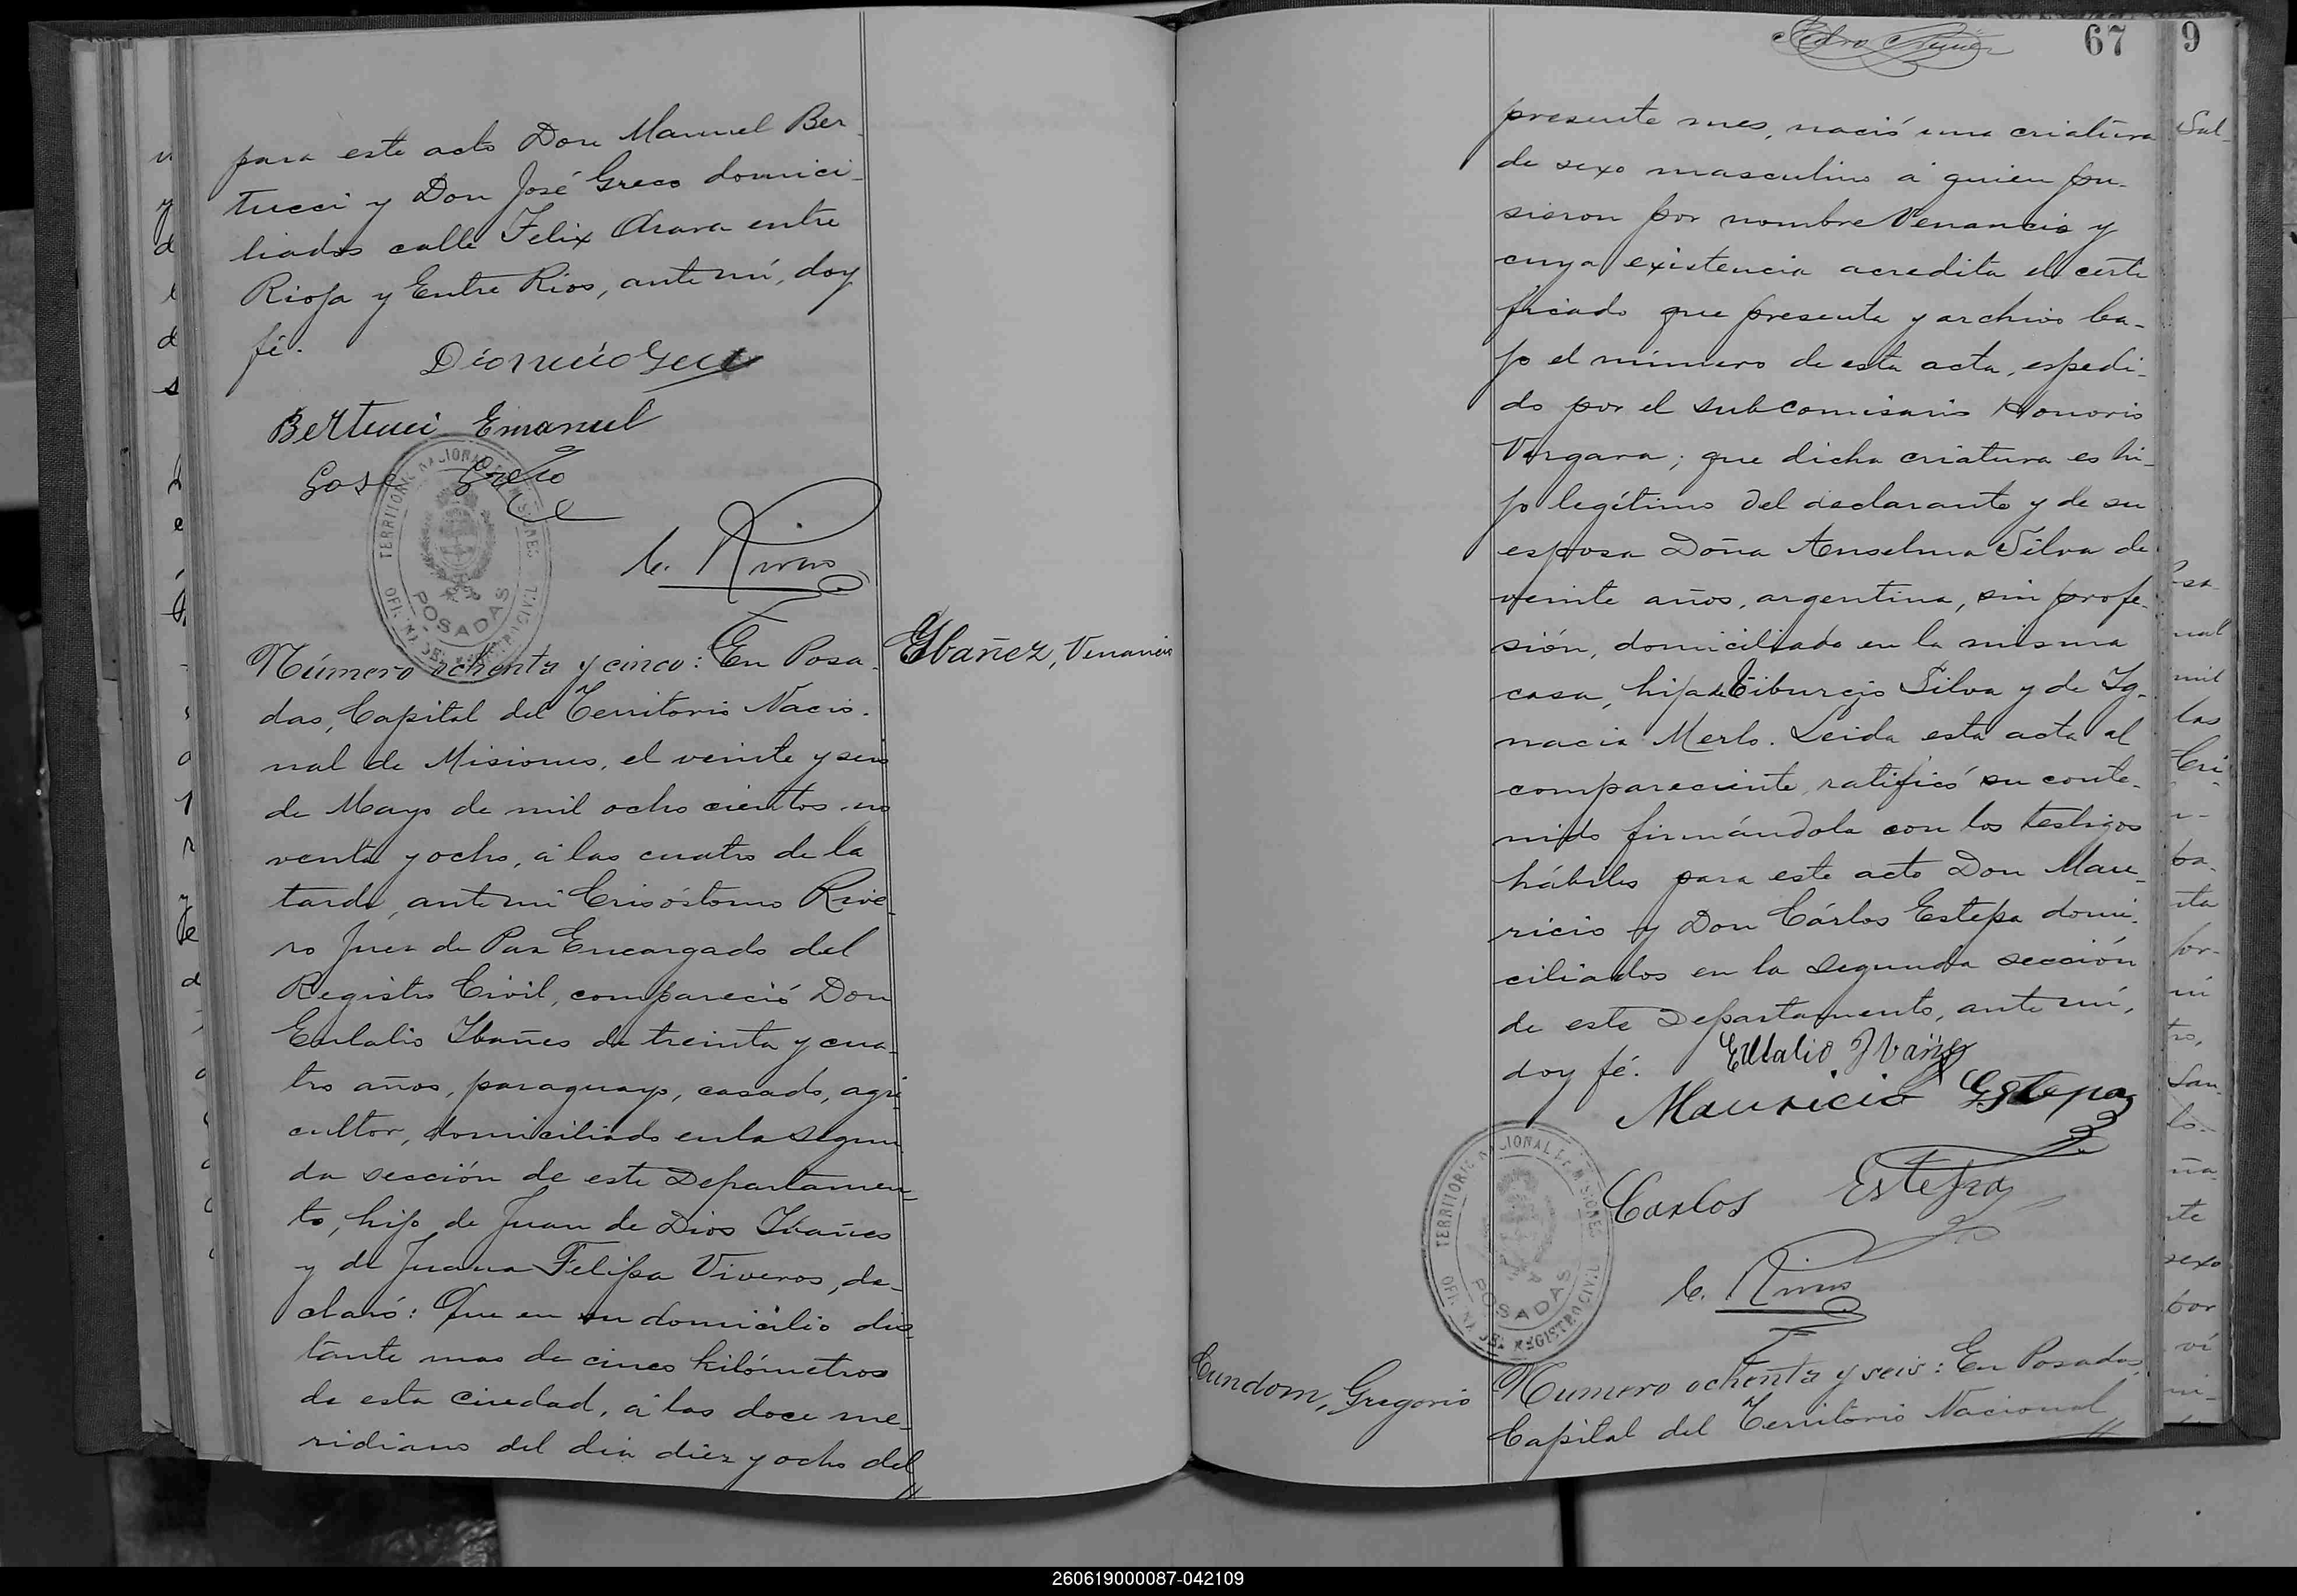 para este acto Don Manuel Ber
tucci y Don José Greco domici-
liados calle Felix Azara entre
Rioja y Entre Rios, ante mí, doy
fé.
Bertucci Emanuel
José Greco
C. Rivero
TERRITORIO NACIONAL DE MISIONES
POSADAS
OFICINA DEL REGISTRO CIVIL
Ybañez, Venancio
Número ochenta y cinco: En Posa-
das, Capital del Territorio Nacio-
nal de Misiones, el veinte y seis
de Mayo de mil ocho cientos no
venta y ocho, á las cuatro de la
tarde, ante mi Crisóstomo Rive-
ro Juez de Paz Encargado del
Registro Civil, compareció Don
Eulalio Ibañes de treinta y cua-
tro años, paraguayo, casado, agri-
cultor, domiciliado en la segun
da sección de este Departamen-
to, hijo de Juan de Dios Ibañes
y de Juana Felipa Viveros, de-
claró: Que en su domicilio dis-
tante mas de cinco kilómetros
de esta ciudad, á las doce me-
ridiano del dia diez y ocho del
67
9
presente mes, nació una criatura
de sexo masculino á quien pu-
sieron por nombre Venancio y
cuya existencia acredita el certi
ficado que presenta y archivo ba-
jo el número de esta acta, espedi-
do por el subcomisario Honorio
Vergara; que dicha criatura es hi-
jo legítimo del declarante y de su
esposa Doña Anselma Silva de
veinte años, argentina, sin profe-
sión, domiciliada en la misma
casa, hija de Tiburcio Silva y de Ig-
nacia Merlo. Leida esta acta al
compareciente, ratificó su conte-
nido firmándola con los testigos
hábiles para este acto Don Mau-
ricio y Don Cárlos Estepa domi-
ciliados en la segunda sección
de este Departamento, ante mí,
doy fé.
Eulalio Ibañez
Mauricio Estepa
Carlos Estepa
C. Rivero
TERRITORIO NACIONAL DE MISIONES
POSADAS
OFICINA DEL REGISTRO CIVIL
Cundom, Gregorio
Numero ochenta y seis: En Posadas,
Capital del Territorio Nacional
260619000087-042109